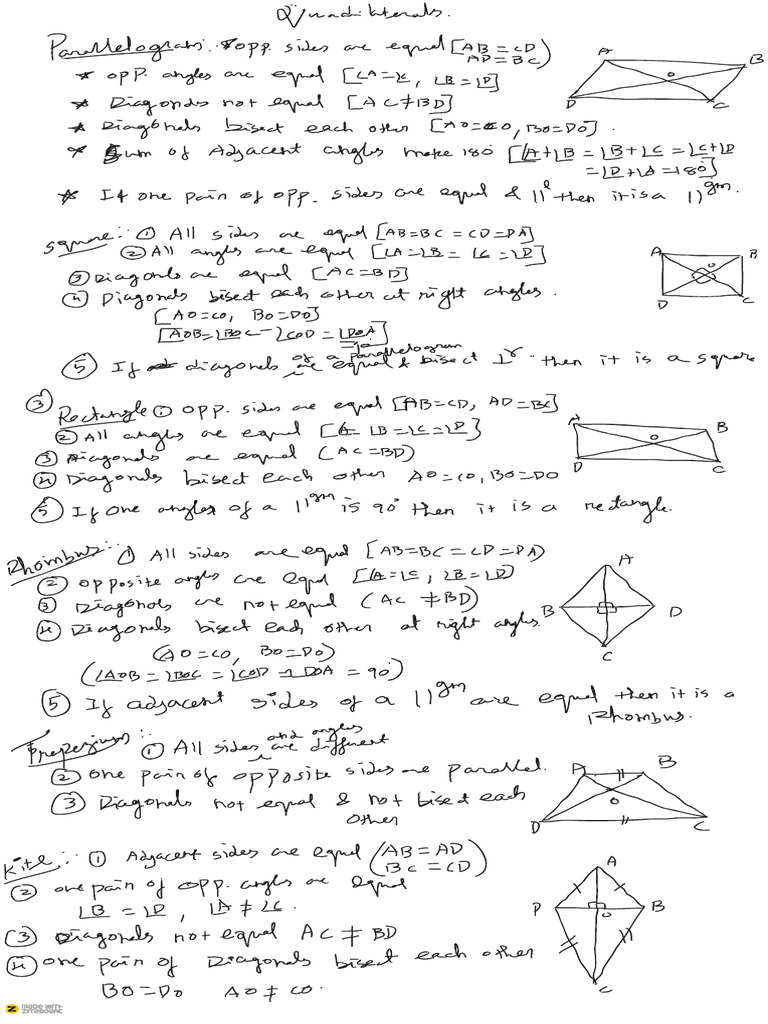 Quadrilaterals.
Parallelogram :- * opp. sides are equal [AB = CD
AD = BC)
* opp. angles are equal [∠A=∠C, ∠B = ∠D]
* Diagonals not equal [AC≠BD]
* Diagonals bisect each other [AO=CO, BO=DO].
* Sum of Adjacent angles make 180 [∠A+∠B = ∠B+∠C = ∠C+∠D
= ∠D+∠A = 180°]
* If one pair of opp. sides are equal & 11l then it is a 11gm.
A B O D C
Square :- ① All sides are equal [AB=BC = CD = DA]
② All angles are equal [∠A=∠B = ∠C = ∠D]
③ Diagonals are equal [AC=BD]
④ Diagonals bisect each other at right angles.
[AO=CO, BO=DO]
[∠AOB=∠BOC=∠COD=∠DOA]
of a parallelogram
⑤ If diagonals are equal & bisect ⊥r then it is a square
A B O D C
③ Rectangle ① opp. sides are equal [AB=CD, AD=BC]
② All angles are equal [∠A= ∠B=∠C=∠D]
③ Diagonals are equal (AC=BD)
④ Diagonals bisect each other AO=CO, BO=DO
⑤ If one angles of a 11gm is 90° then it is a rectangle.
A B O D C
Rhombus :- ① All sides are equal [AB=BC = CD=DA)
② opposite angles are equal [∠A=∠C, ∠B=∠D]
③ Diagonals are not equal (AC ≠BD)
④ Diagonals bisect each other at right angles.
(AO=CO, BO=DO)
(∠AOB = ∠BOC = ∠COD = ∠DOA = 90°)
⑤ If adjacent sides of a 11gm are equal then it is a
Rhombus.
A B D C
Trapezium :- ① All sides and angles are different
② One pair of opposite sides are parallel.
③ Diagonals not equal & not bisect each
other
A B O D C
Kite :- ① Adjacent sides are equal (AB = AD
BC = CD)
② one pair of opp. angles are equal
∠B = ∠D, ∠A ≠ ∠C.
③ Diagonals not equal AC ≠ BD
④ one pair of Diagonals bisect each other
BO=DO AO ≠ CO.
A D B O C
MADE WITH
ZITEBOARD